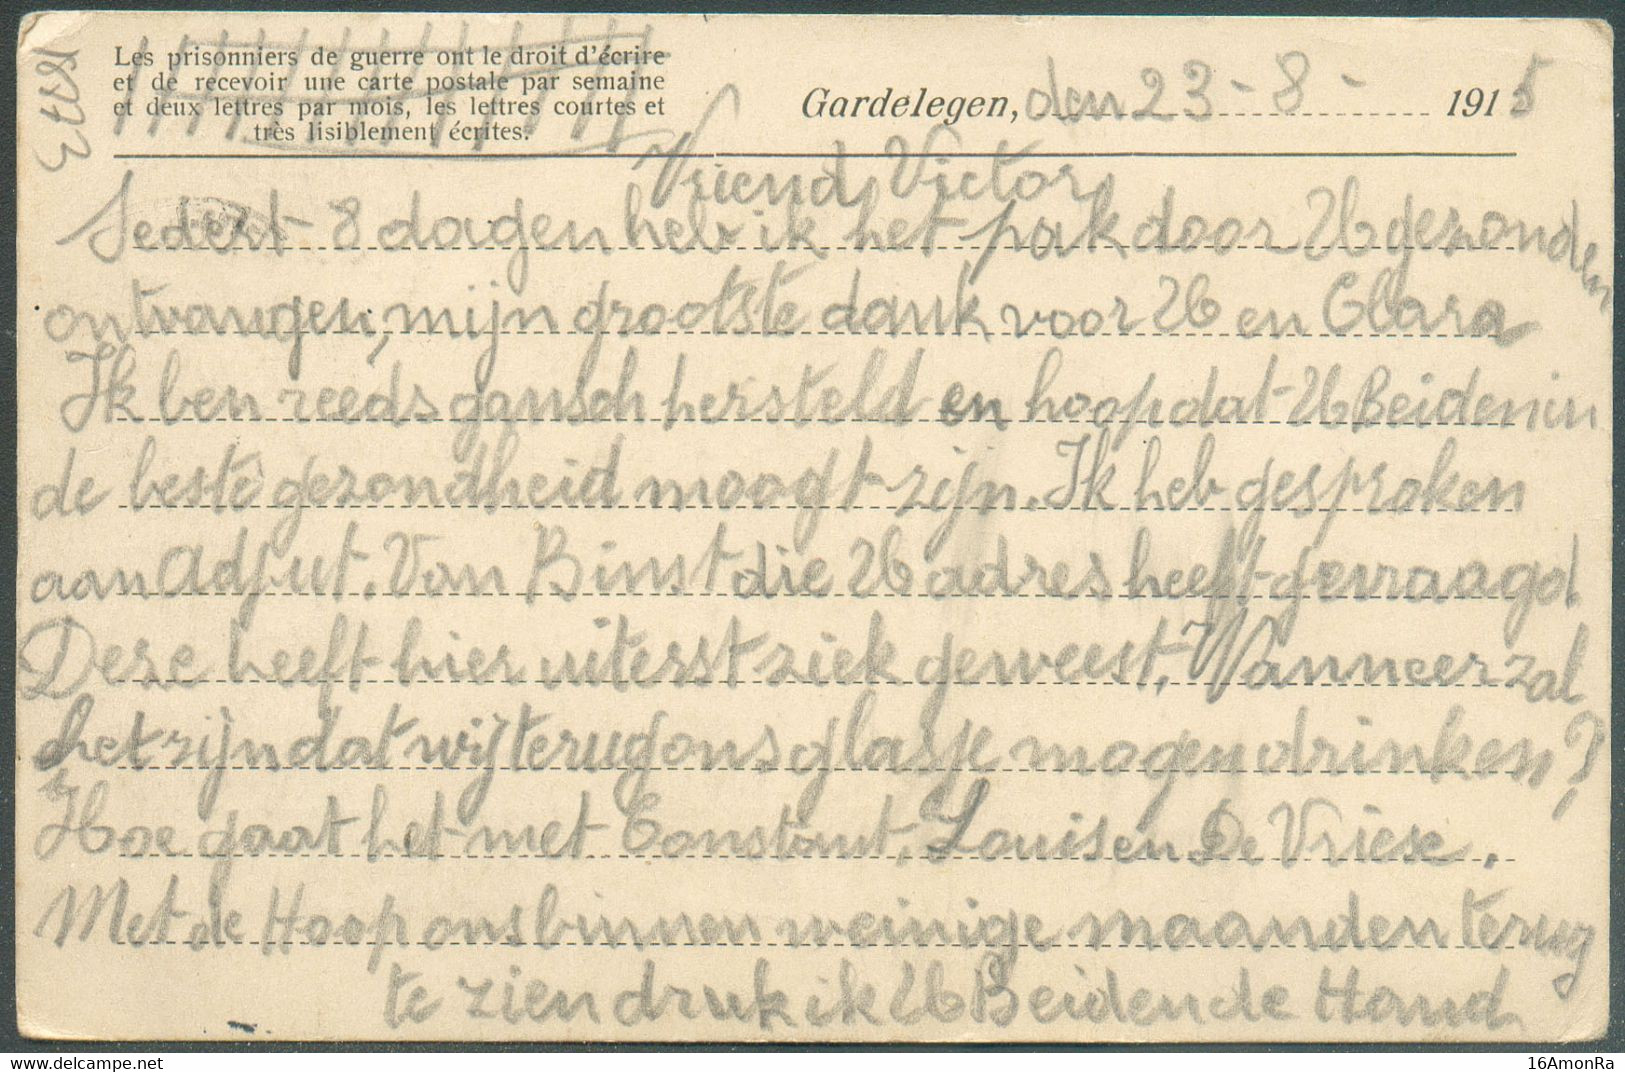 Les prisonniers de guerre ont le droit d'écrire
et de recevoir une carte postale par semaine
et deux lettres par mois, les lettres courtes et
très lisiblement écrites.
Gardelegen, den 23-8- 1915
Vriend Victor,
Sedert 8 dagen heb ik het pak door U gezonden
ontvangen, mijn grootste dank voor U en Clara
Ik ben reeds gansch hersteld en hoop dat U Beiden in
de beste gezondheid moogt zijn. Ik heb gesproken
aan Adjut. Van Binst die U adres heeft gevraagd.
Deze heeft hier uiterst ziek geweest. Wanneer zal
het zijn dat wij terug ons glasje mogen drinken?
Hoe gaat het met Constant, Louis en De Vriese.
Met de Hoop ons binnen weinige maanden terug
te zien druk ik U Beiden de Hand
16AmonRa